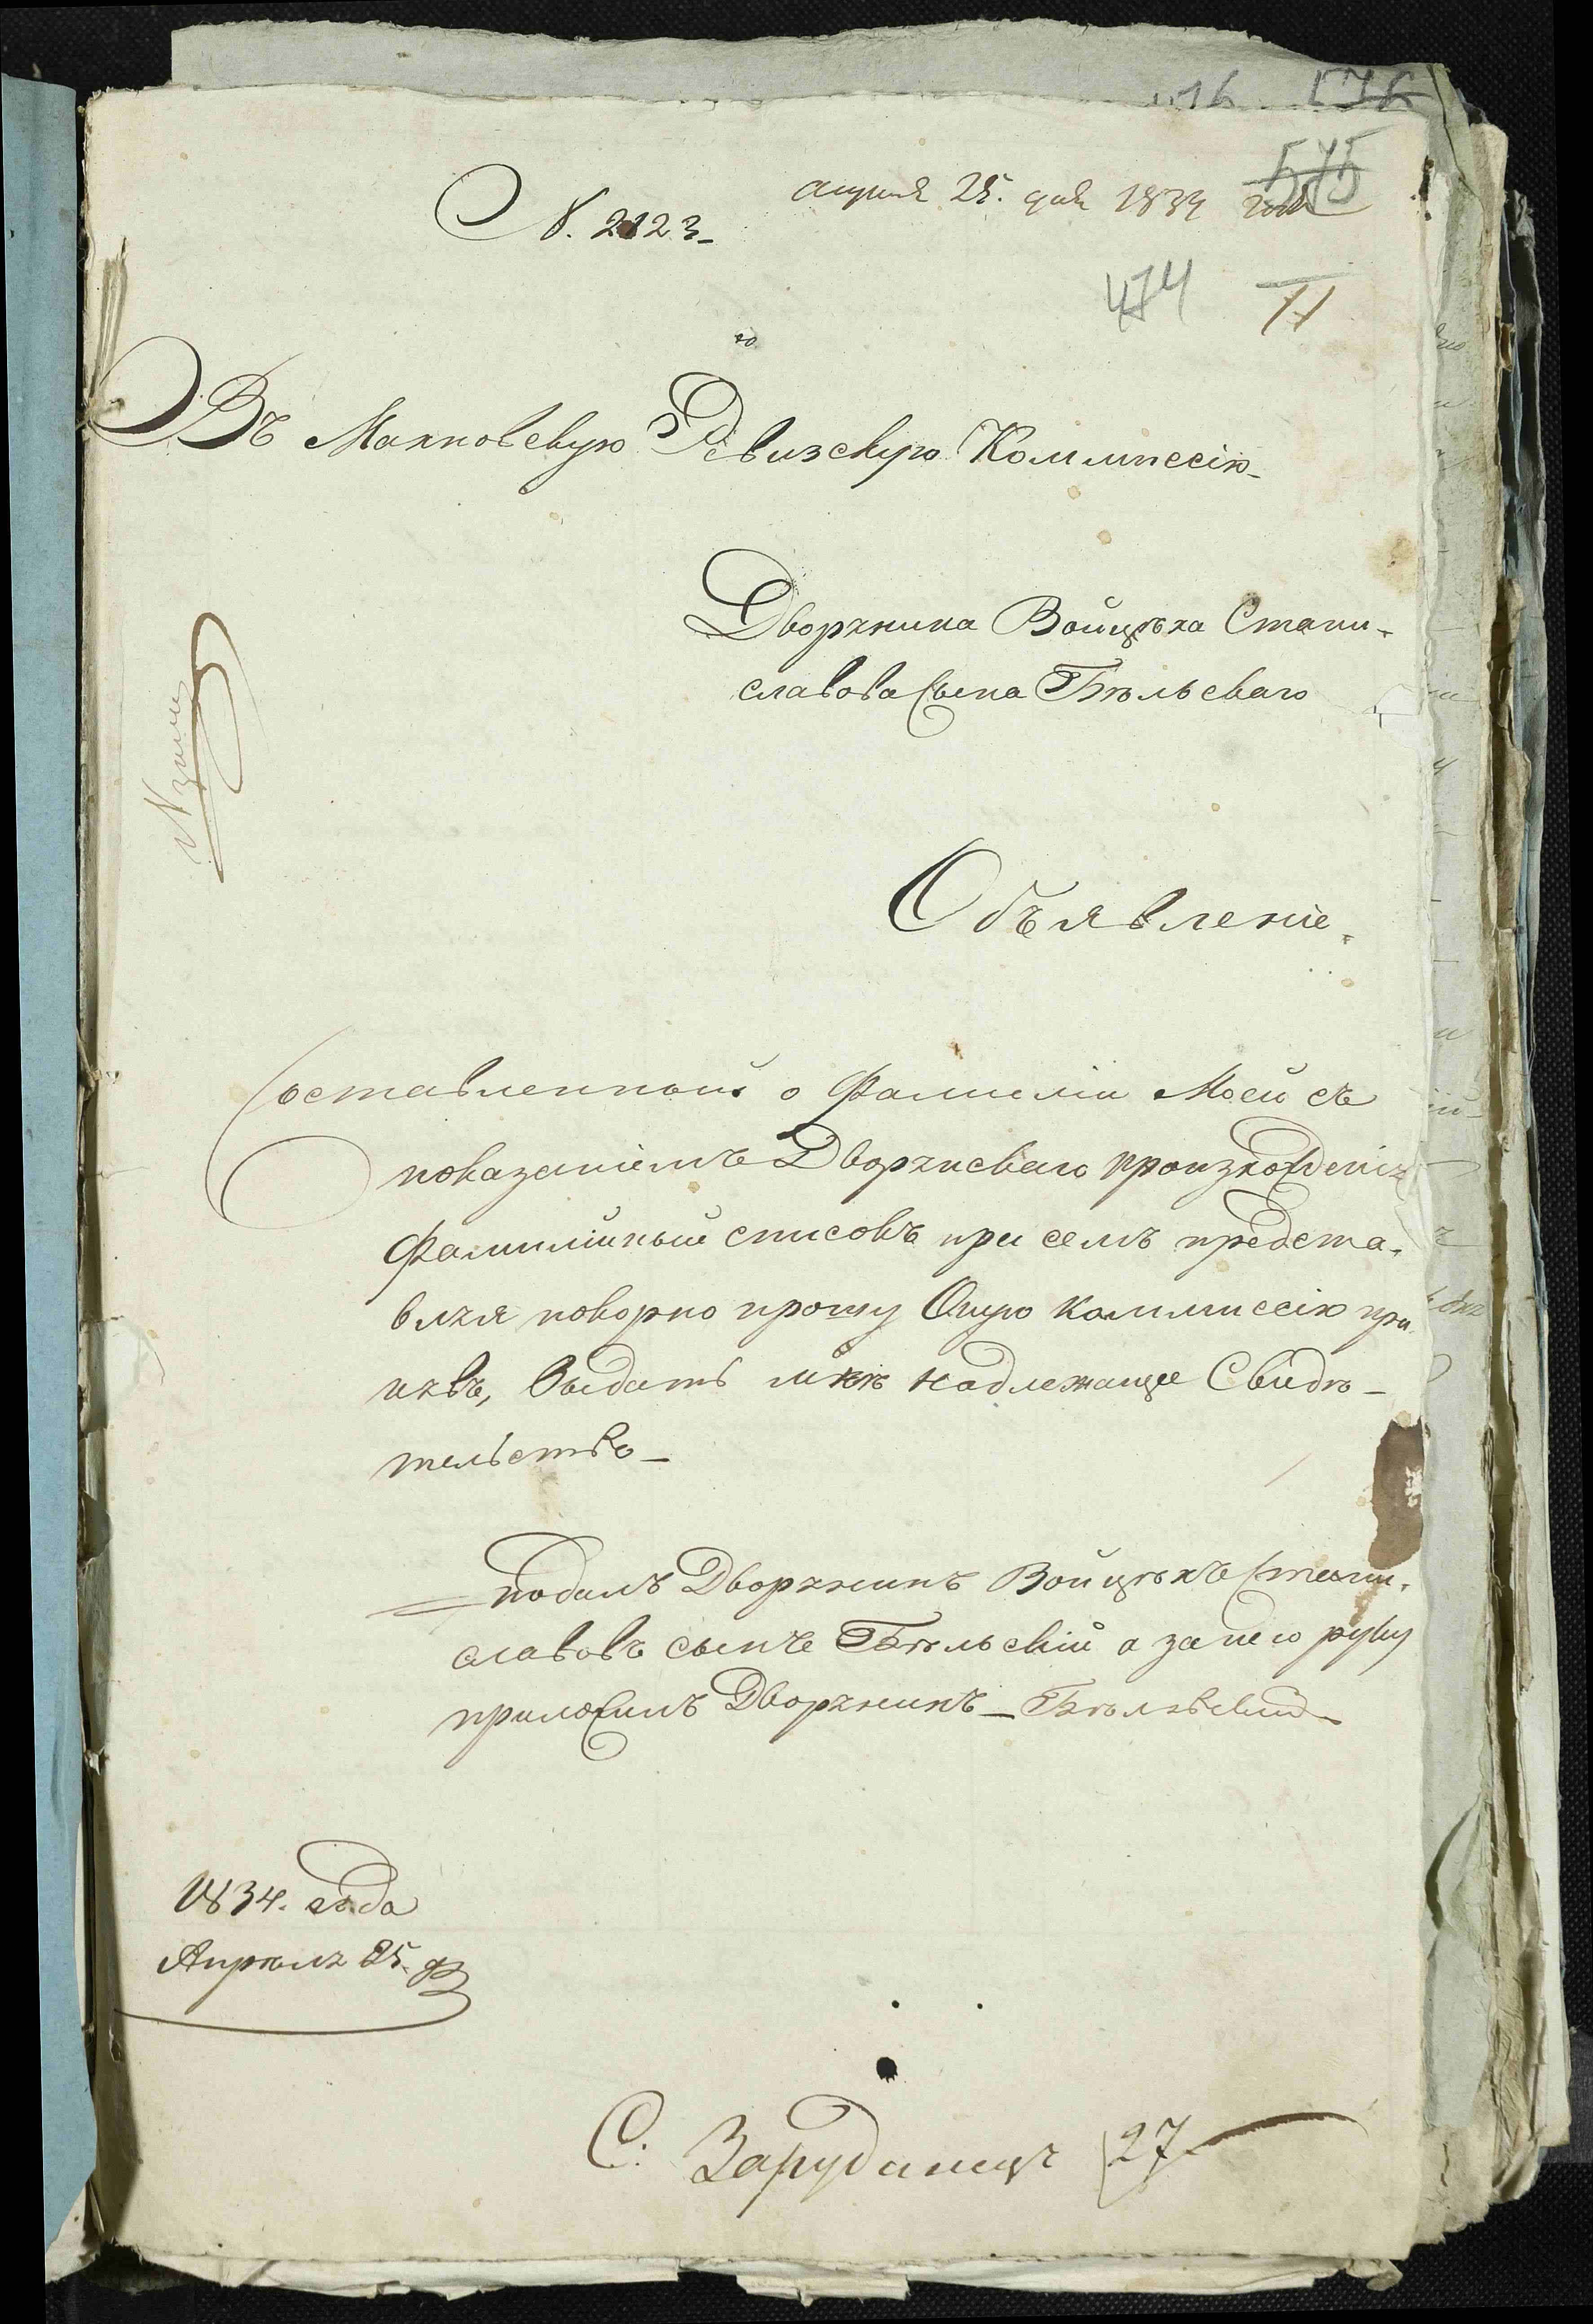 576
апреля 25. дня 1834 года
575
N. 2123
474 11
Въ Махновскую Ревизскую Коммиссію
Дворянина Войцѣха Стани-
славова Сына Бѣльскаго
Объявленіе.
Составленный о Фамиліи Моей съ
показаніемъ Дворянскаго происхожденія
Фамилійный списокъ при семъ предста-
вляя покорно прошу Оную Коммиссію при-
нявъ, Выдать мнѣ надлежащее Свидѣ-
тельство
подалъ Дворянинъ Войцѣхъ Стани-
славовъ сынъ Бѣльскій а за него руку
приложилъ Дворянинъ Бѣльскій
1834. года
Апрѣля 25.
С. Зарудинцы 27